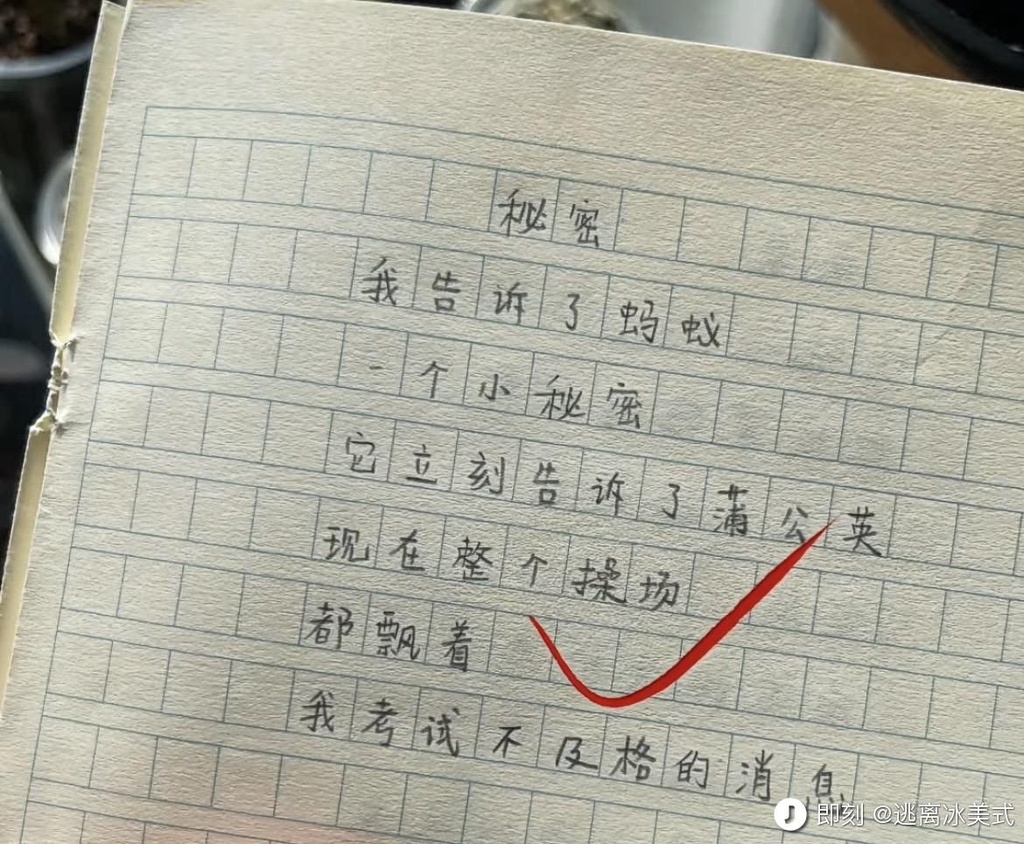 秘密
我告诉了蚂蚁
一个小秘密
它立刻告诉了蒲公英
现在整个操场
都飘着
我考试不及格的消息
即刻 @逃离冰美式